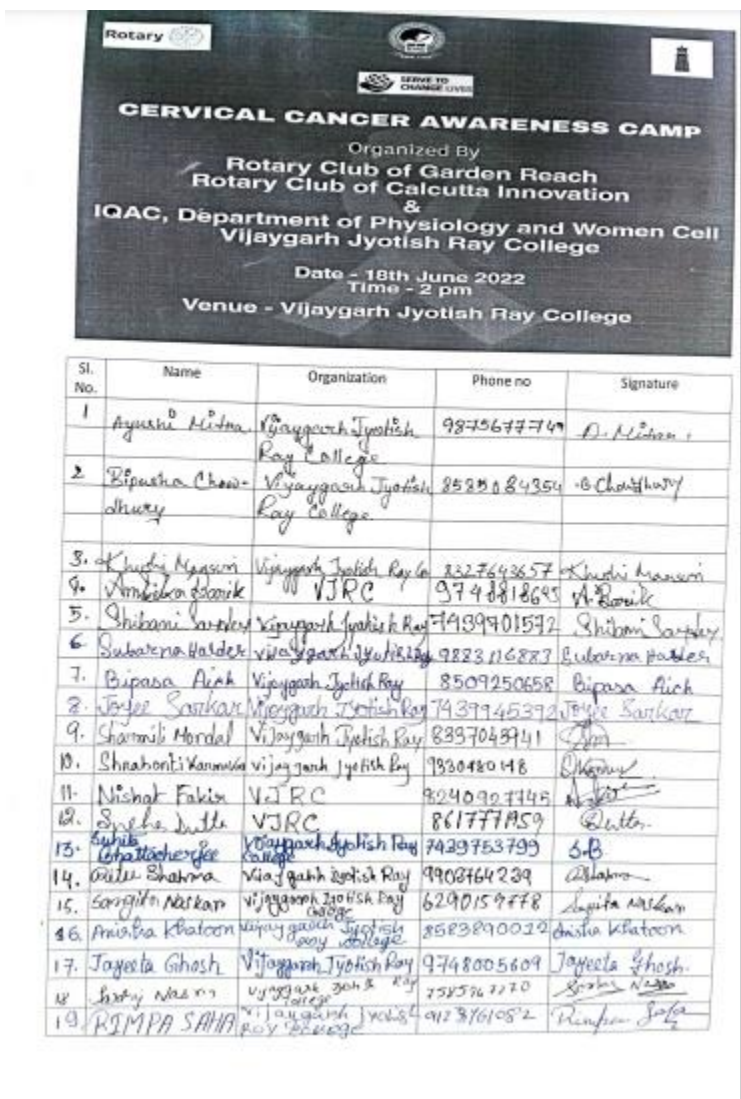 Rotary
SERVE TO
CHANGE LIVES
CERVICAL CANCER AWARENESS CAMP
Organized By
Rotary Club of Garden Reach
Rotary Club of Calcutta Innovation
&
IQAC, Department of Physiology and Women Cell
Vijaygarh Jyotish Ray College
Date - 18th June 2022
Time - 2 pm
Venue - Vijaygarh Jyotish Ray College
Sl. No. Name Organization Phone no Signature
1 Ayushi Mitra Vijaygarh Jyotish Ray College 9875677749 A. Mitra
2 Bipasha Chow-dhury Vijaygarh Jyotish Ray College 8585084354 B Chowdhury
3. Khushi Vijaygarh Jyotish Ray Co 8327643657 Khushi
4. Barik VJRC 9748818695 A. Barik
5. Shibani Vijaygarh Jyotish Ray 7439701572 Shibani
6 Subarna Halder Vijaygarh Jyotish Ray 9883116883 Subarna Halder
7. Bipasa Aich Vijaygarh Jyotish Ray 8509250658 Bipasa Aich
8. Joyee Sarkar Vijaygarh Jyotish Ray 7439945392 Joyee Sarkar
9. Sharmili Mondal Vijaygarh Jyotish Ray
10. Vijaygarh Jyotish Ray
11. Nishat Fakir VJRC 8240927745
12. Sneha Dutta VJRC Dutta
13. Bhattacherjee Vijaygarh Jyotish Ray College 7439753799 S.B
14. Ritu Sharma Vijaygarh Jyotish Ray 9903764239
15. Sangita Naskar Vijaygarh Jyotish Ray College 6290159778 Sangita Naskar
16. Anisha Khatoon Vijaygarh Jyotish Roy College 8583890012 Anisha Khatoon
17. Jayeeta Ghosh Vijaygarh Jyotish Ray 9748005609 Jayeeta Ghosh.
18 Vijaygarh Ray College
19. RIMPA SAHA Vijaygarh Jyotish Roy College Rimpa Saha